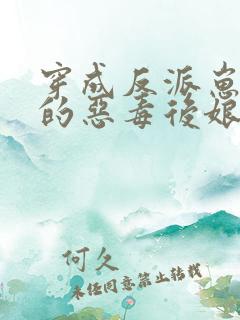 穿成反派崽
的惡毒後娘
何久
未经同意禁止转载